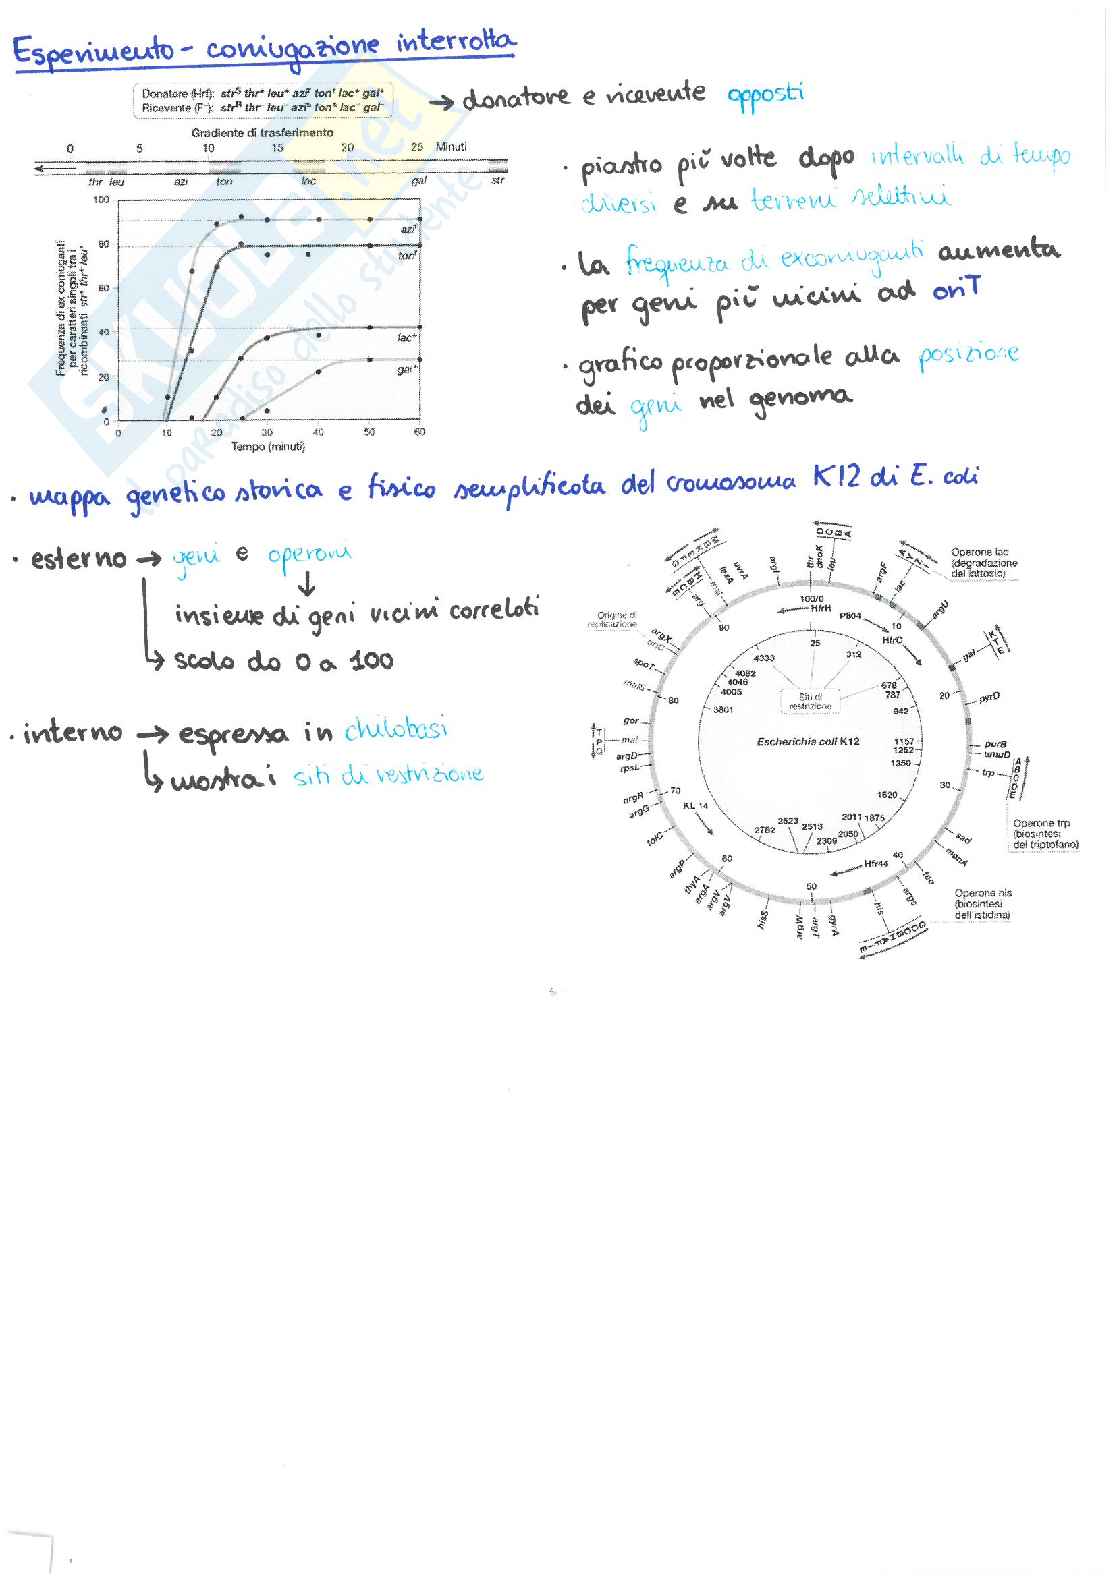 Esperimento - coniugazione interrotta
Donatore (Hfr): strS thr+ leu+ azir tonr lac+ gal+
Ricevente (F-): strR thr- leu- azis tons lac- gal-
→ donatore e ricevente opposti
Gradiente di trasferimento
0 5 10 15 20 25 Minuti
thr leu azi ton lac gal str
Frequenza di ex coniuganti
per caratteri singoli tra i
ricombinanti strr thr+ leu+
100
80
60
40
20
0
azir
tonr
lac+
gal+
0 10 20 30 40 50 60
Tempo (minuti)
· piastro più volte dopo intervalli di tempo
diversi e su terreni selettivi
· la frequenza di exconiuganti aumenta
per geni più vicini ad oriT
· grafico proporzionale alla posizione
dei geni nel genoma
SKUOLA.net
il paradiso dello studente
· mappa genetico storica e fisico semplificata del cromosoma K12 di E. coli
· esterno → geni e operoni
insieme di geni vicini correlati
scala da 0 a 100
· interno → espressa in chilobasi
mostra i siti di restrizione
Operone lac
(degradazione
del lattosio)
Origine di
replicazione
Siti di
restrizione
Escherichia coli K12
Operone trp
(biosintesi
del triptofano)
Operone his
(biosintesi
dell'istidina)
100/0
HfrH
P804
10
HfrC
20
30
40
Hfr44
50
60
KL 14
70
80
90
25
312
678
787
942
1157
1252
1350
1620
1875
2011
2050
2309
2513
2523
2782
3801
4005
4046
4082
4333
thr
dnaK
leu
argF
lac
argU
gal
pyrD
purB
umuD
trp
sad
manA
argS
his
gyrA
argT
hisS
argV
argA
thyA
argP
tolC
argG
argR
rpsL
argD
mal
gor
spoT
argX
argI
uvrA
lexA